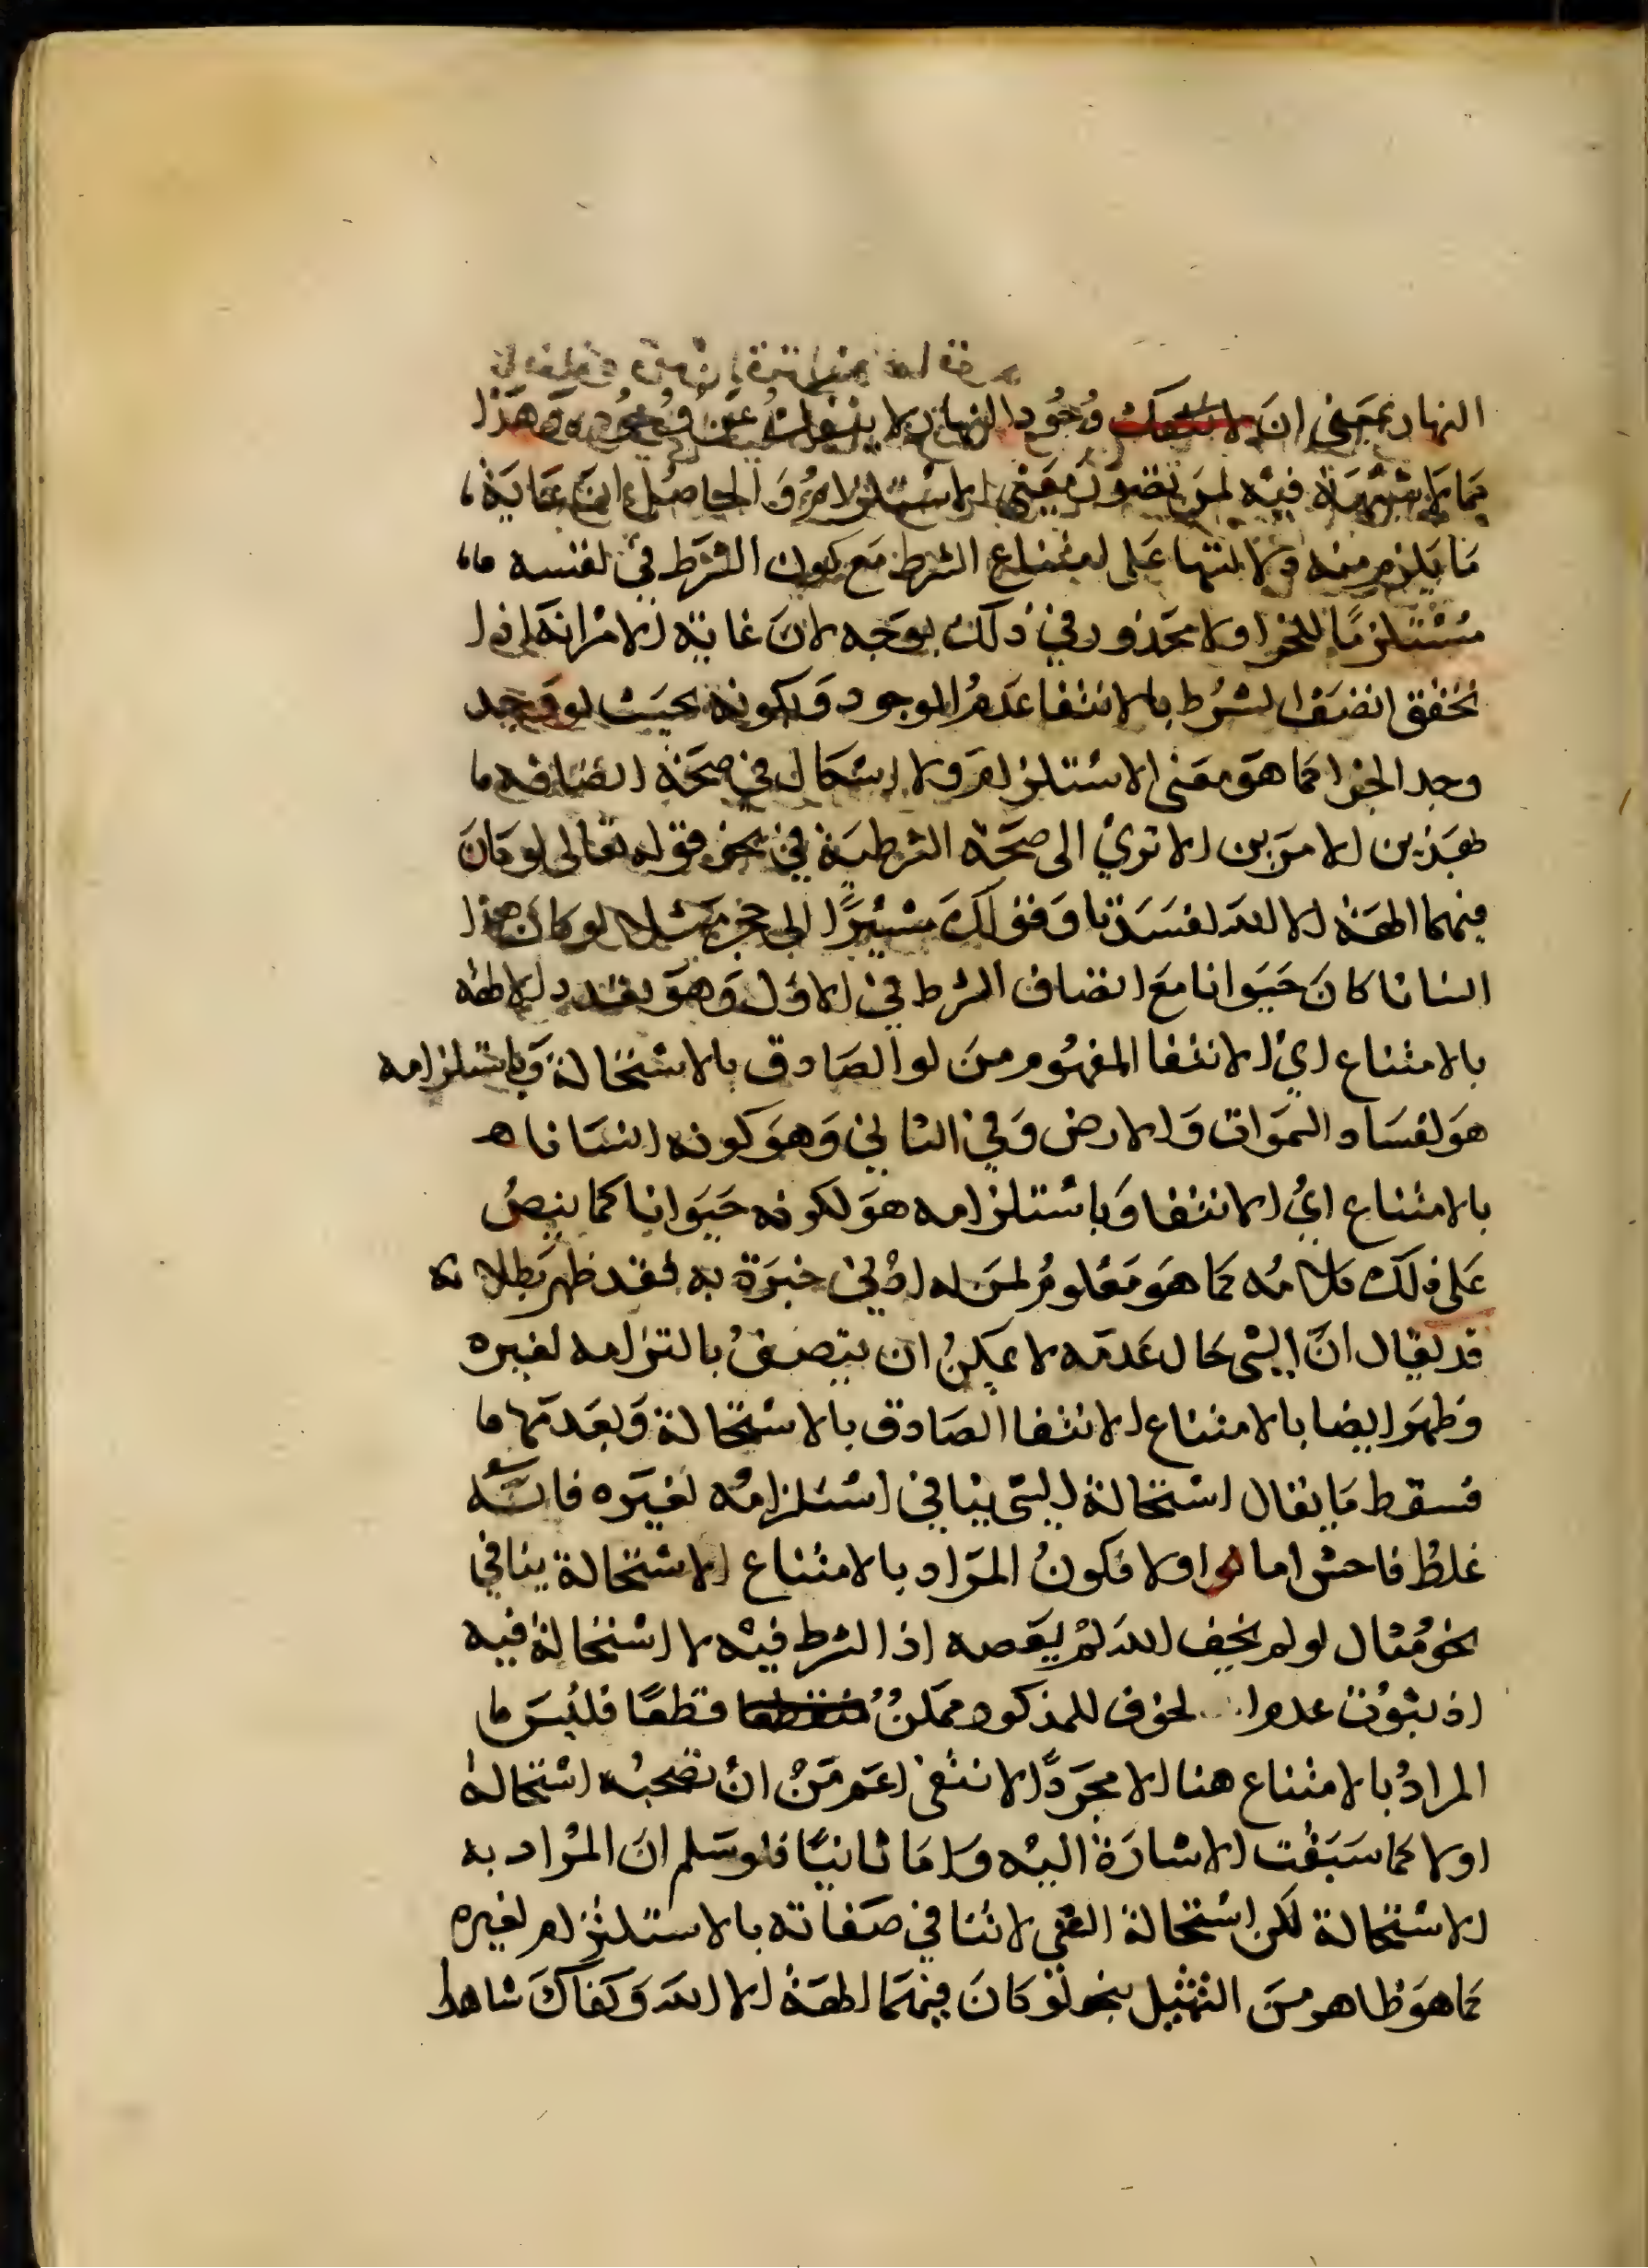 النهار بمعنى ان وجود النهار لا ينفك عن وجوده وهذا
مما لا شبهة فيه لمن تصور معنى الاستلزام والحاصل ان غاية
ما يلزم منه دلالتها على امتناع الشرط مع كون الشرط في نفسه
مستلزمًا للجزا ولا محذور في ذلك بوجه لان غايته الامر انه اذا
تحقق اتصف الشرط بالانتفا عدم الوجود وبكونه بحيث لو وجد
وجد الجزا كما هو معنى الاستلزام ولا اشكال في صحة اتصافه
بهذين الامرين الا ترى الى صحة الشرطية في نحو قوله تعالى لو كان
فيهما الهة الا الله لفسدتا وقولك مشيرًا الى حجر مثلا لو كان هذا
انسانا كان حيوانا مع اتصاف الشرط في الاول وهو تعدد الالهة
بالامتناع اي الانتفا المفهوم من لو الصادق بالاستحالة وباستلزامه
هو لفساد السموات والارض وفي الثاني وهو كونه انسانا
بالامتناع اي الانتفا وباستلزامه هو لكونه حيوانا كما ينص
على ذلك كلامه كما هو معلوم لمن له ادنى خبرة به فقد ظهر بطلانه
قد يقال ان الشي حال عدمه لا يمكن ان يتصف بالتزامه لغيره
وظهر ايضا بالامتناع الانتفا الصادق بالاستحالة وبعدمها
فسقط ما يقال استحالة الشي ينافي استلزامه لغيره فانه
غلط فاحش اما اولا فكون المراد بالامتناع الاستحالة ينافي
نحو مثال لو لم يخف الله لم يعصه اذ الشرط فيه لا استحالة فيه
اذ ثبوت عدم الخوف للمذكور ممكن قطعًا فليس
المراد بالامتناع هنا الا مجرد الانتفى اعم من ان تصحبه استحالة
اولا كما سبقت الاشارة اليه واما ثانيًا فلو سلم ان المراد به
الاستحالة لكن استحالة الشي لا تنافي صفاته بالاستلزام لغيره
كما هو ظاهر من التمثيل بنحو لو كان فيهما الهة الا الله وكفاك شاهدا